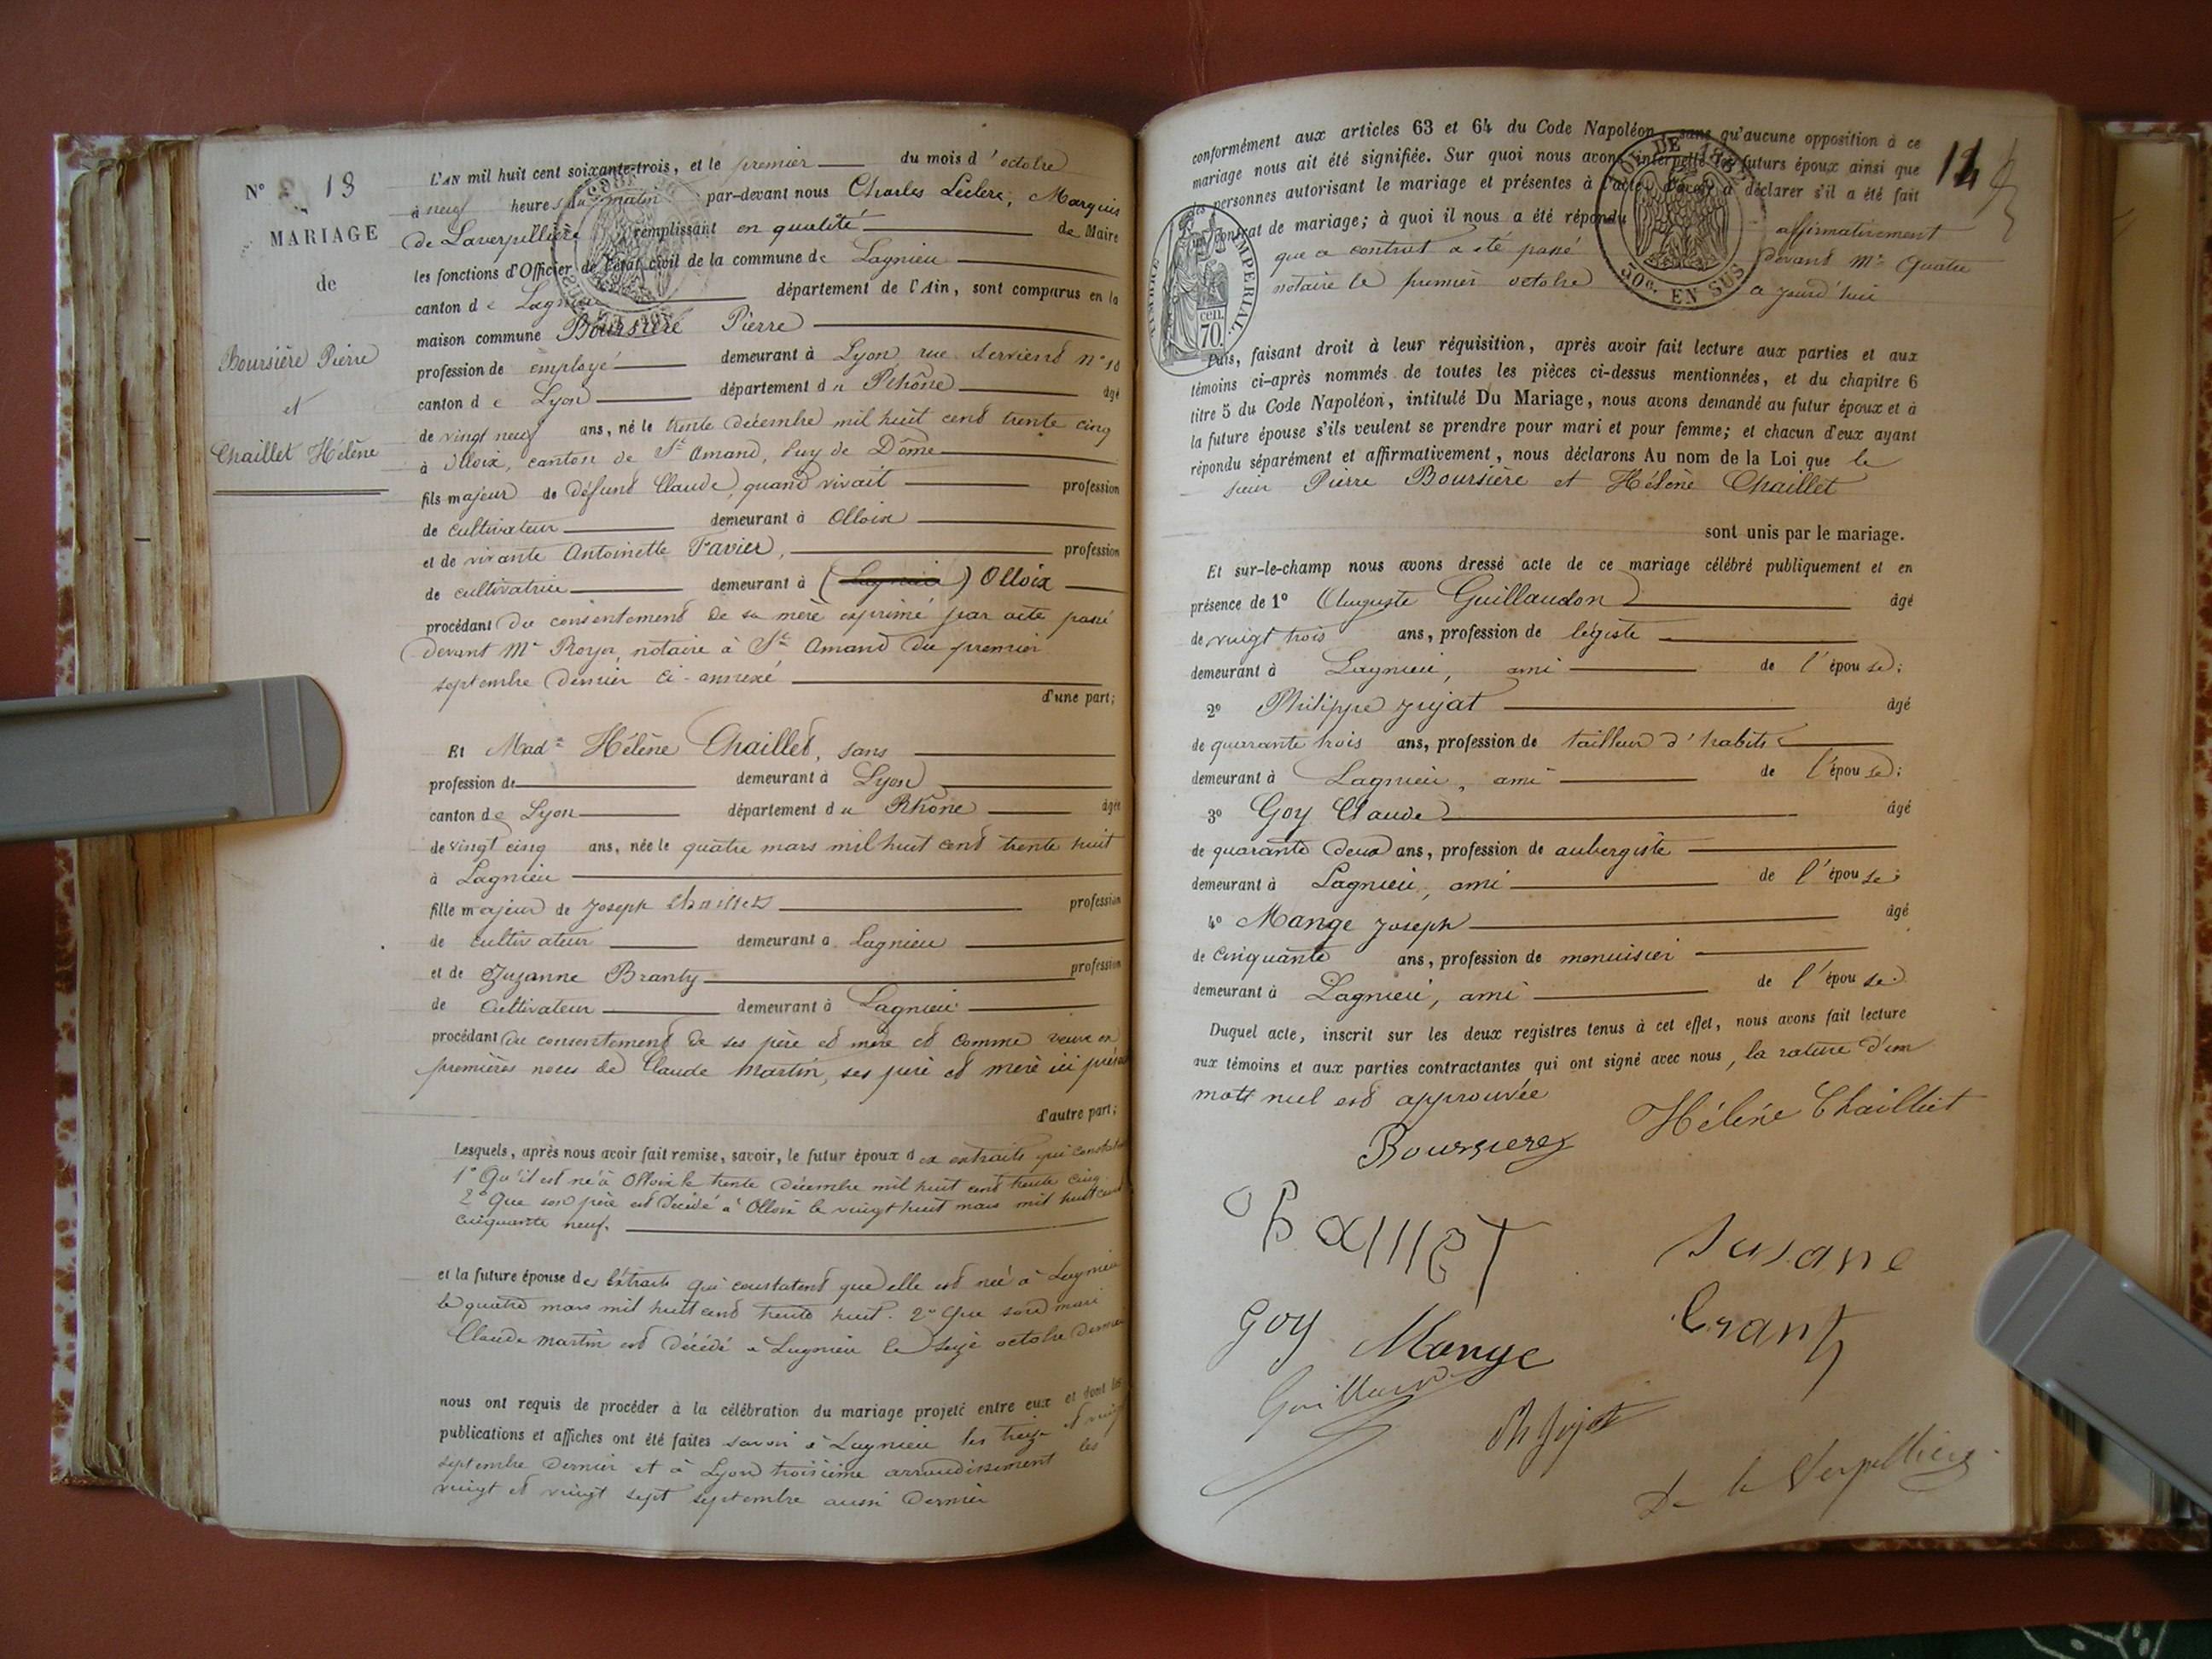 N° 13
MARIAGE
de
Boursière Pierre
et
Chaillet Hélène
L'AN mil huit cent soixante-trois, et le premier du mois d'octobre
à neuf heures du matin par-devant nous Charles Leclerc, Marquis
de Laverpillière remplissant en qualité de Maire
les fonctions d'Officier de l'état civil de la commune de Lagnieu
canton de Lagnieu département de l'Ain, sont comparus en la
maison commune Boursière Pierre
profession de employé demeurant à Lyon rue Servient n° 10
canton de Lyon département du Rhône âgé
de vingt neuf ans, né le trente décembre mil huit cent trente cinq
à Olloix, canton de St Amand, Puy de Dôme
fils majeur de défunt Claude, quand vivait profession
de cultivateur demeurant à Olloix
et de vivante Antoinette Favier, profession
de cultivatrice demeurant à (Lagnieu) Olloix
procédant du consentement de sa mère exprimé par acte passé
devant Me Royer, notaire à St Amand du premier
septembre dernier ci-annexé
d'une part;
Et Made Hélène Chaillet, sans
profession de demeurant à Lyon
canton de Lyon département du Rhône âgée
de vingt cinq ans, née le quatre mars mil huit cent trente huit
à Lagnieu
fille majeur de Joseph Chaillet profession
de cultivateur demeurant à Lagnieu
et de Suzanne Branty profession
de cultivateur demeurant à Lagnieu
procédant du consentement de ses père et mère et comme veuve en
premières noces de Claude Martin, ses père et mère ici présents
d'autre part;
Lesquels, après nous avoir fait remise, savoir, le futur époux d extraits qui constatent
1° Qu'il est né à Olloix le trente décembre mil huit cent trente cinq
2° Que son père est décédé à Olloix le vingt huit mars mil huit cent
cinquante neuf.
et la future épouse des extraits qui constatent que elle est née à Lagnieu
le quatre mars mil huit cent trente huit. 2° Que son mari
Claude Martin est décédé à Lagnieu le seize octobre dernier
nous ont requis de procéder à la célébration du mariage projeté entre eux et dont les
publications et affiches ont été faites savoir à Lagnieu les treize et vingt
septembre dernier et à Lyon troisième arrondissement les
vingt et vingt sept septembre aussi dernier
conformément aux articles 63 et 64 du Code Napoléon, sans qu'aucune opposition à ce
mariage nous ait été signifiée. Sur quoi nous avons interpellé les futurs époux ainsi que
les personnes autorisant le mariage et présentes à l'acte, d'avoir à déclarer s'il a été fait
contrat de mariage; à quoi il nous a été répondu affirmativement
que a contrat a été passé devant Me Quatre
notaire le premier octobre a jourd'hui
TIMBRE IMPERIAL
cen. 70.
LOI DE 1862
50c. EN SUS
14
Puis, faisant droit à leur réquisition, après avoir fait lecture aux parties et aux
témoins ci-après nommés de toutes les pièces ci-dessus mentionnées, et du chapitre 6
titre 5 du Code Napoléon, intitulé Du Mariage, nous avons demandé au futur époux et à
la future épouse s'ils veulent se prendre pour mari et pour femme; et chacun d'eux ayant
répondu séparément et affirmativement, nous déclarons Au nom de la Loi que le
sieur Pierre Boursière et Hélène Chaillet
sont unis par le mariage.
Et sur-le-champ nous avons dressé acte de ce mariage célébré publiquement et en
présence de 1° Auguste Guillaudon âgé
de vingt trois ans, profession de légiste
demeurant à Lagnieu, ami de l'épouse;
2° Philippe Jujat âgé
de quarante trois ans, profession de tailleur d'habits
demeurant à Lagnieu, ami de l'épouse;
3° Goy Claude âgé
de quarante deux ans, profession de aubergiste
demeurant à Lagnieu, ami de l'épouse;
4° Mange Joseph âgé
de cinquante ans, profession de menuisier
demeurant à Lagnieu, ami de l'épouse
Duquel acte, inscrit sur les deux registres tenus à cet effet, nous avons fait lecture
aux témoins et aux parties contractantes qui ont signé avec nous, la rature d'un
mots nul est approuvée
Boursiere Hélène Chaillet
Chaillet Susane
Goy Mange Brant
Guillaudon
Ph Jujat
De la Verpillière